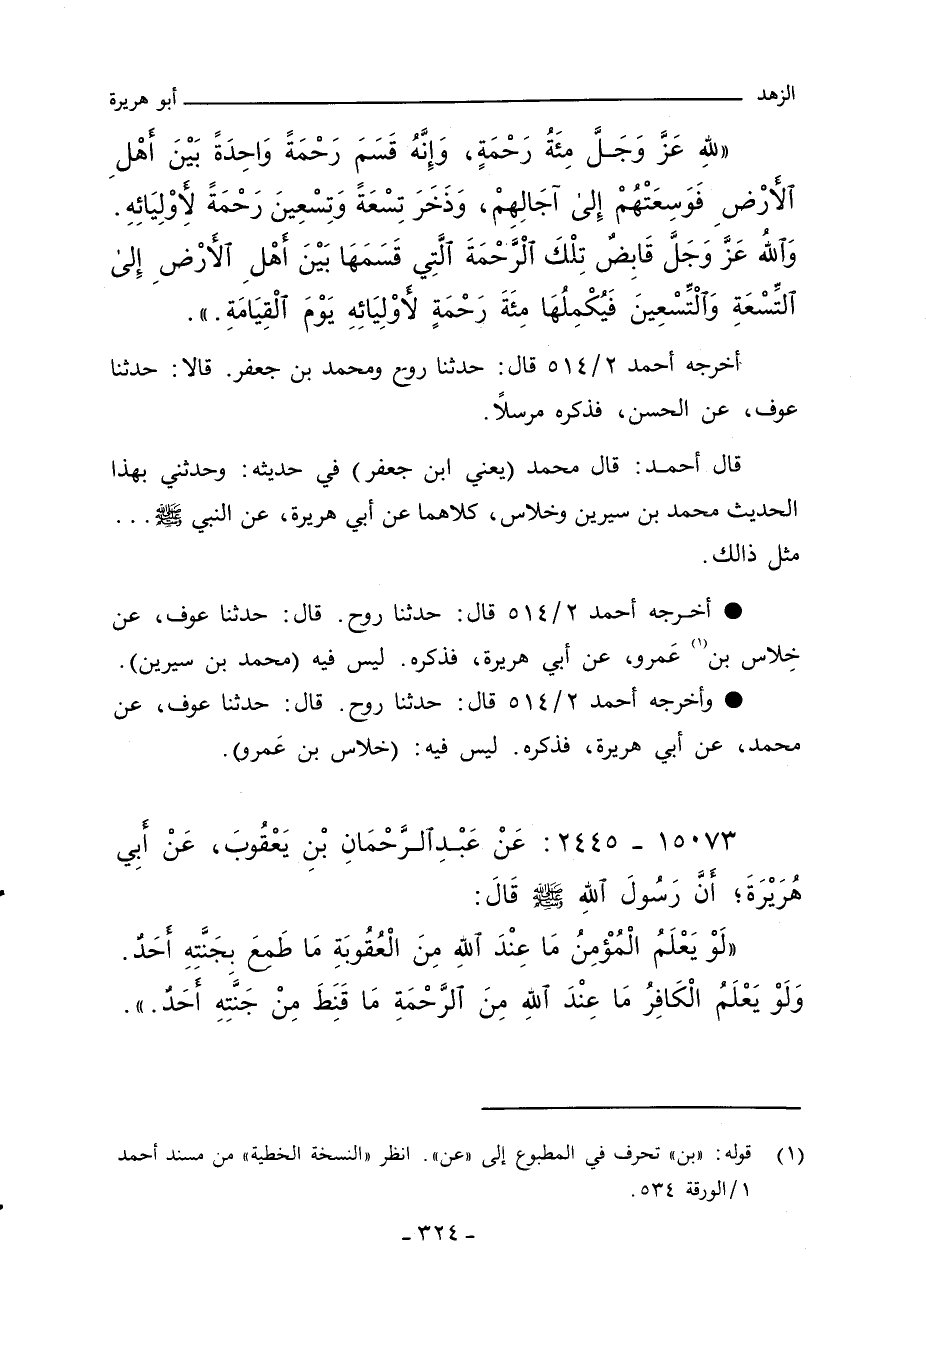 الزهد ــــــــــــ أبو هريرة
«لِلهِ عَزَّ وَجَــلَّ مِئَةُ رَحْمَةٍ، وَإِنَّهُ قَسَمَ رَحْمَةً وَاحِدَةً بَيْنَ أَهْلِ
ٱلْأَرْضِ فَوَسِعَتْهُمْ إِلىٰ آجَالِهِمْ، وَذَخَرَ تِسْعَةً وَتِسْعِينَ رَحْمَةً لِأَوْلِيَائِهِ.
وَٱللهُ عَزَّ وَجَلَّ قَابِضٌ تِلْكَ ٱلْرَّحْمَةَ ٱلَّتِي قَسَمَهَا بَيْنَ أَهْلِ ٱلْأَرْضِ إِلىٰ
ٱلتِّسْعَةِ وَٱلْتِّسْعِينَ فَيُكْمِلُهَا مِئَةَ رَحْمَةٍ لِأَوْلِيَائِهِ يَوْمَ ٱلْقِيَامَةِ.».
أخرجه أحمد ٥١٤/٢ قال: حدثنا روح ومحمد بن جعفر. قالا: حدثنا
عوف، عن الحسن، فذكره مرسلًا.
قال أحمــد: قال محمد (يعني ابن جعفر) في حديثه: وحدثني بهذا
الحديث محمد بن سيرين وخلاس، كلاهما عن أبي هريرة، عن النبي ﷺ...
مثل ذالك.
● أخــرجه أحمد ٥١٤/٢ قال: حدثنا روح. قال: حدثنا عوف، عن
خِلاس بن(١) عَمرو، عن أبي هريرة، فذكره. ليس فيه (محمد بن سيرين).
● وأخرجه أحمد ٥١٤/٢ قال: حدثنا روح. قال: حدثنا عوف، عن
محمد، عن أبي هريرة، فذكره. ليس فيه: (خلاس بن عَمرو).
١٥٠٧٣ - ٢٤٤٥: عَنْ عَبْـدِٱلـرَّحْمَانِ بْنِ يَعْقُوبَ، عَنْ أَبِي
هُرَيْرَةَ؛ أَنَّ رَسُولَ ٱللهِ ﷺ قَالَ:
«لَوْ يَعْلَمُ الْمُؤْمِنُ مَا عِنْدَ ٱللهِ مِنَ الْعُقُوبَةِ مَا طَمِعَ بِجَنَّتِهِ أَحَدٌ.
وَلَوْ يَعْلَمُ الْكَافِرُ مَا عِنْدَ ٱللهِ مِنَ ٱلرَّحْمَةِ مَا قَنِطَ مِنْ جَنَّتِهِ أَحَدٌ.».
(١) قوله: «بن» تحرف في المطبوع إلى «عن». انظر «النسخة الخطية» من مسند أحمد
١/الورقة ٥٣٤.
- ٣٢٤ -